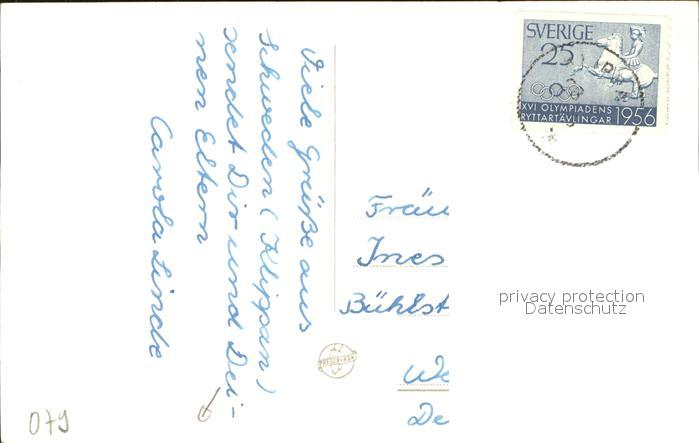 Viele Grüße aus
Schweden (Klippan)
sendet Dir und Dei-
nen Eltern
Carola Linde
SVERIGE
25
XVI OLYMPIADENS
RYTTARTÄVLINGAR 1956
Fräu
Ines
Bühlst
We
De
privacy protection
Datenschutz
079